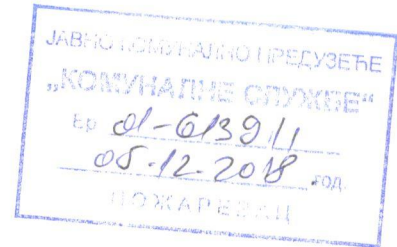 ЈАВНО КОМУНАЛНО ПРЕДУЗЕЋЕ
„КОМУНАЛНЕ СЛУЖБЕ“
Бр. 01-6139/1
05-12-2018 год.
ПОЖАРЕВАЦ